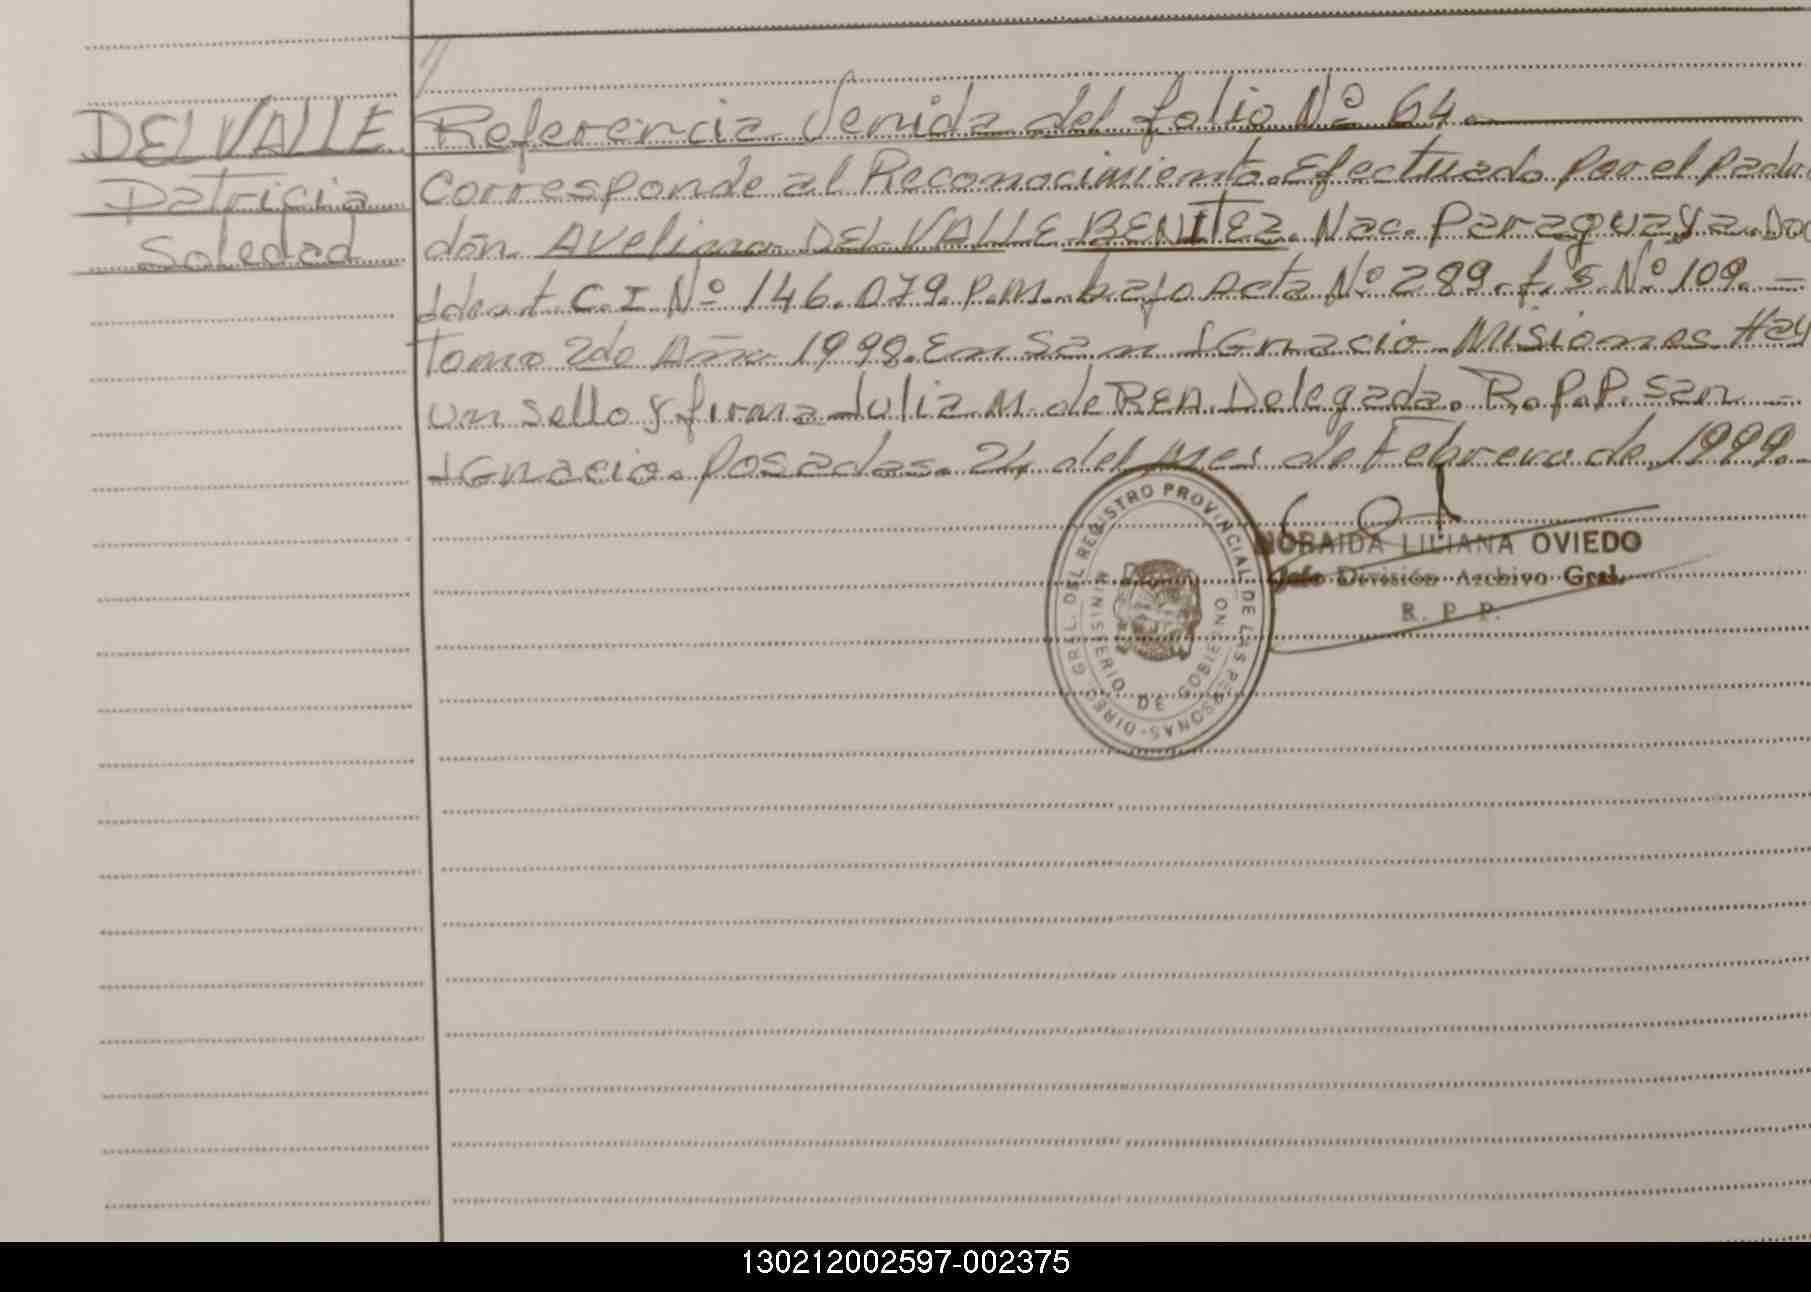 DEL VALLE
Patricia
Soledad
Referencia Venida del folio Nº 64.
Corresponde al Reconocimiento Efectuado Por el padre
dón Avelino DEL VALLE BENITEZ. Nac. Paraguaya. Doc
Ident C.I Nº 146.079. P.M. bajo Acta Nº 289. fs. Nº 109. —
Tomo 2do Año 1998. En San IGnacio Misiones Hay
un sello y firma Julia M. de REA. Delegada. R.P.P. San —
IGnacio. Posadas. 24 del Mes de Febrero de 1999.
NORAIDA LILIANA OVIEDO
Jefe División Archivo Gral.
R. P. P.
DIREC. GRAL. DEL REGISTRO PROVINCIAL DE LAS PERSONAS -
MINISTERIO DE GOBIERNO
130212002597-002375